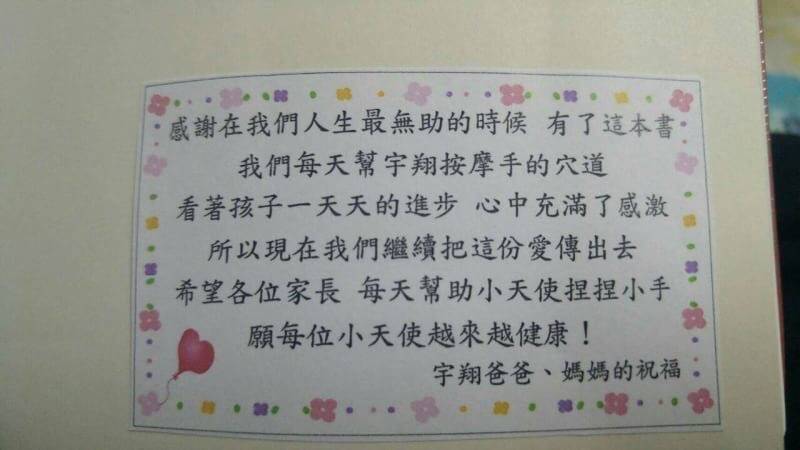 感謝在我們人生最無助的時候 有了這本書
我們每天幫宇翔按摩手的穴道
看著孩子一天天的進步 心中充滿了感激
所以現在我們繼續把這份愛傳出去
希望各位家長 每天幫助小天使捏捏小手
願每位小天使越來越健康！
宇翔爸爸、媽媽的祝福